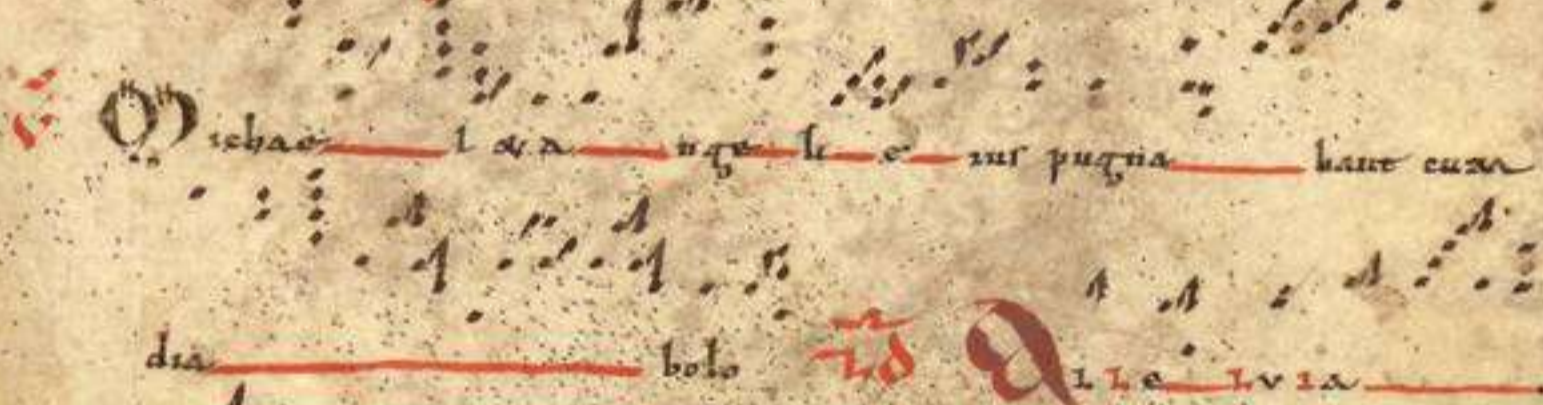 V Michae l & a nge li e ius pugna bant cum
dia bolo Id A l l e l u i a